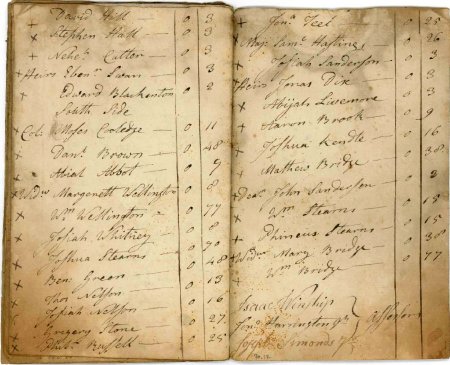 David Hill 0 3
x Stephen Hall 0 3
x Nehe. Cutter 0 3
Heirs Eben. Swan 0 3
x Edward Blackenton 0 2
South Side
Col. Moses Cooledge 0 11
x Dan. Brown 0 48
x Abial Abbot 0 9
Wido Margerett Wellington 0 8
x Wm Wellington 0 77
x Josiah Whitney 0 8
x Joshua Stearns 0 70
x Ben Green 0 48
x Thos Nelson 0 13
x Josiah Nelson 0 16
x Gregory Stone 0 27
x Russell 0 25
x Jon. Teel 0 25
Maj. Saml. Hasting 0 26
x Josiah Sanderson 0 3
Heirs Jonas Dix 0 3
x Abijah Livermore 0 3
x Aaron Brook 0 9
x Joshua Kendle 0 16
x Mathew Bridge 0 38
Deac. John Sanderson 0 2
x Wm Stearns 0 15
x Phineus Stearns 0 15
Wido Mary Bridge 0 38
x Wm Bridge 0 77
Isaac Winship
Jon. Harrington Assessors
Joseph Simonds